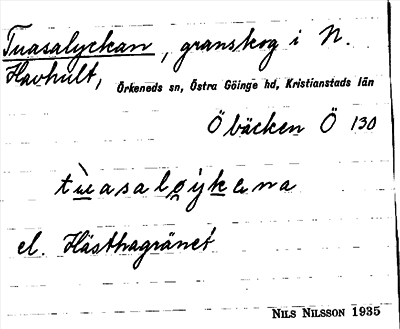 Tuasalyckan, granskog i N.
Havhult, Örkeneds sn, Östra Göinge hd, Kristianstads län
Ö bäcken Ö 130
tùasaløykana
el. Hästhagränet
NILS NILSSON 1935